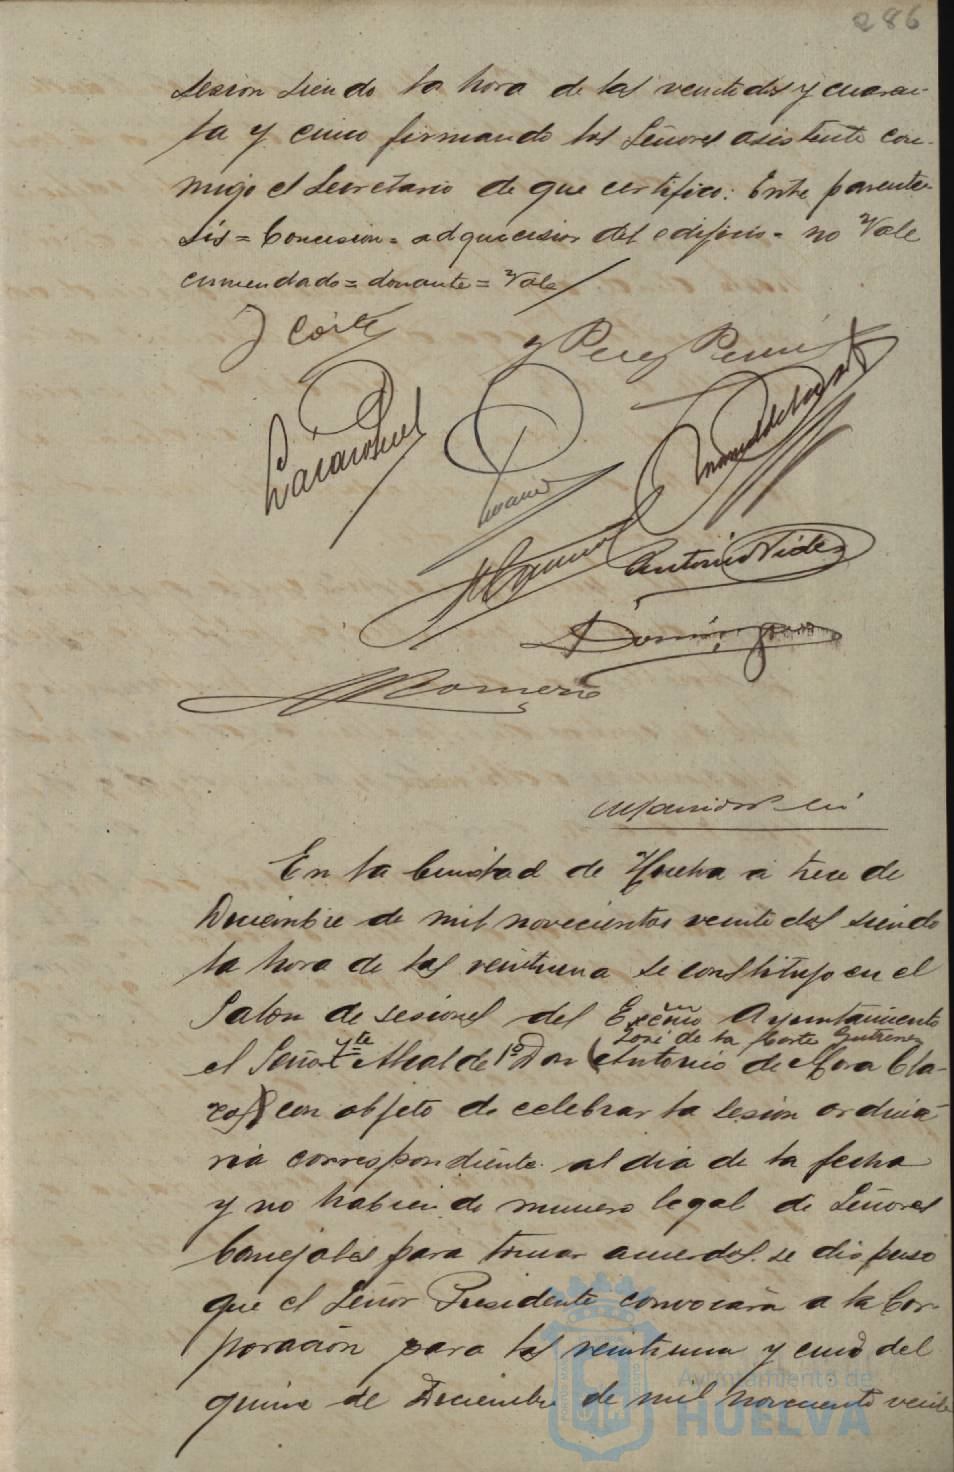 286
sesion siendo la hora de las veintedos y cuaren-
ta y cinco firmando los Señores asistente con-
migo el Secretario de que certifico: Entre parente-
sis = Concesion = adquicision del edificio = no Vale
enmendado = donante = Vale
J Corte
y Perez
Antonio Videz
Dominguez
Romero
En la Ciudad de Huelva a trece de
Diciembre de mil novecientos veinte dos siendo
la hora de las veintiuna se constituyo en el
Salon de sesiones del Excmo Ayuntamiento
José de la Corte Gutierrez
el Señor Alcalde 1º yte Don (Antonio de Mora Cla-
ros) con objeto de celebrar la sesion ordina-
ria correspondiente al dia de la fecha
y no habiendo numero legal de Señores
Concejales para tomar acuerdos se dispuso
que el Señor Presidente convocara a la Cor-
poracion para las veintiuna y cinco del
quince de Diciembre de mil novecientos veinte
Ayuntamiento de
HUELVA